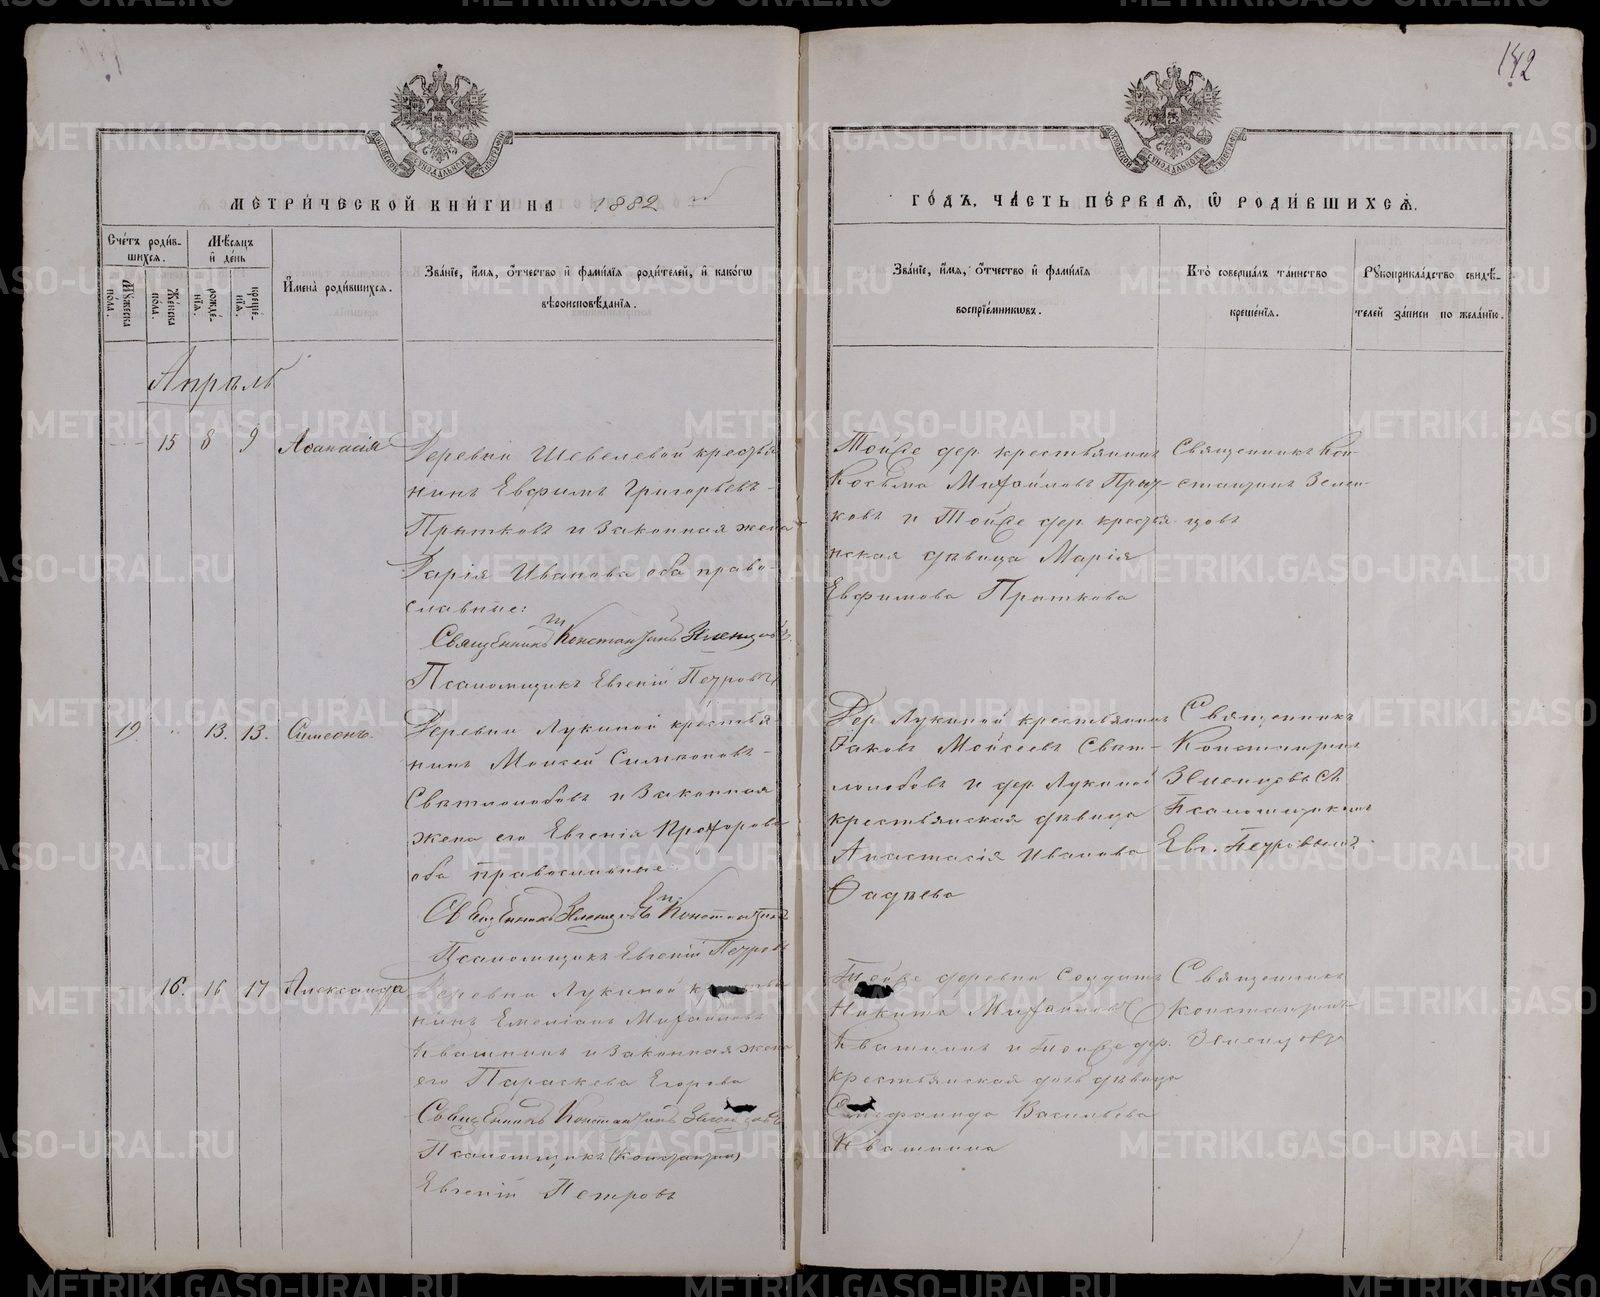 142
МЕТРИ́ЧЕСКОЙ КНИ́ГИ НА 1882
ГО́ДЪ, ЧА́СТЬ ПЕ́РВАЯ, Ѿ РОДИ́ВШИХСЯ.
Сче́тъ роди́в-
шихся.
Му́жеска пола.
Же́нска пола.
Мѣ́сяцъ
и́ де́нь
рожде́-
нія.
креще́-
нія.
И҆мена̀ роди́вшихся.
Зва́ніе, и҆́мя, о҆́тчество и҆ фамі́лія роди́телей, и҆ како́гѡ
вѣроисповѣ́данія.
Зва́ніе, и҆́мя, о҆́тчество и҆ фамі́лія
воспріе́мникѡвъ.
Кто̀ соверша́лъ та́инство
креще́нія.
Рꙋкоприкла́дство свидѣ́-
телей за́писи по жела́нію.
Апрѣль
15 8 9 Аѳанасія
Деревни Шевелевой крестья
нинъ Евфимъ Григорьевъ
Прытковъ и законная жена
Дарія Иванова оба право-
славные:
Священникъ Константинъ Земленцовъ
Псаломщикъ Евгеній Петровъ
Тойже дер. крестьянинъ
Косьма Михайловъ Прыт-
ковъ и Тойже дер. крестья
нская дѣвица Марія
Евфимова Прыткова
Священникъ Кон-
стантинъ
цовъ
19 13. 13. Симеонъ.
Деревни Лукиной крестья
нинъ Моисей Симеоновъ
Святолюбовъ и законная
жена его Евгенія Прохорова
оба православные
Священникъ Константинъ
Псаломщикъ Евгеній Петровъ
Дер. Лукиной крестьянинъ
Іаковъ Моисеевъ Свят-
лолюбовъ и дер. Лукиной
крестьянская дѣвица
Анастасія Иванова
Фадѣева
Священникъ
Константинъ
съ
Псаломщикомъ
Евг. Петровымъ
16. 16 17 Александра
Деревни Лукиной
нинъ Емеліанъ Михайловъ
Квашнинъ и законная жена
его Параскева Егорова
Священникъ Константинъ
Псаломщикъ (Константин)
Евгеній Петровъ
деревни Солдатъ
Никита Михайловъ
Квашнинъ и тойже дер.
крестьянская дочь дѣвица
Васильева
Квашнина
Священникъ
Константинъ
METRIKI.GASO-URAL.RU